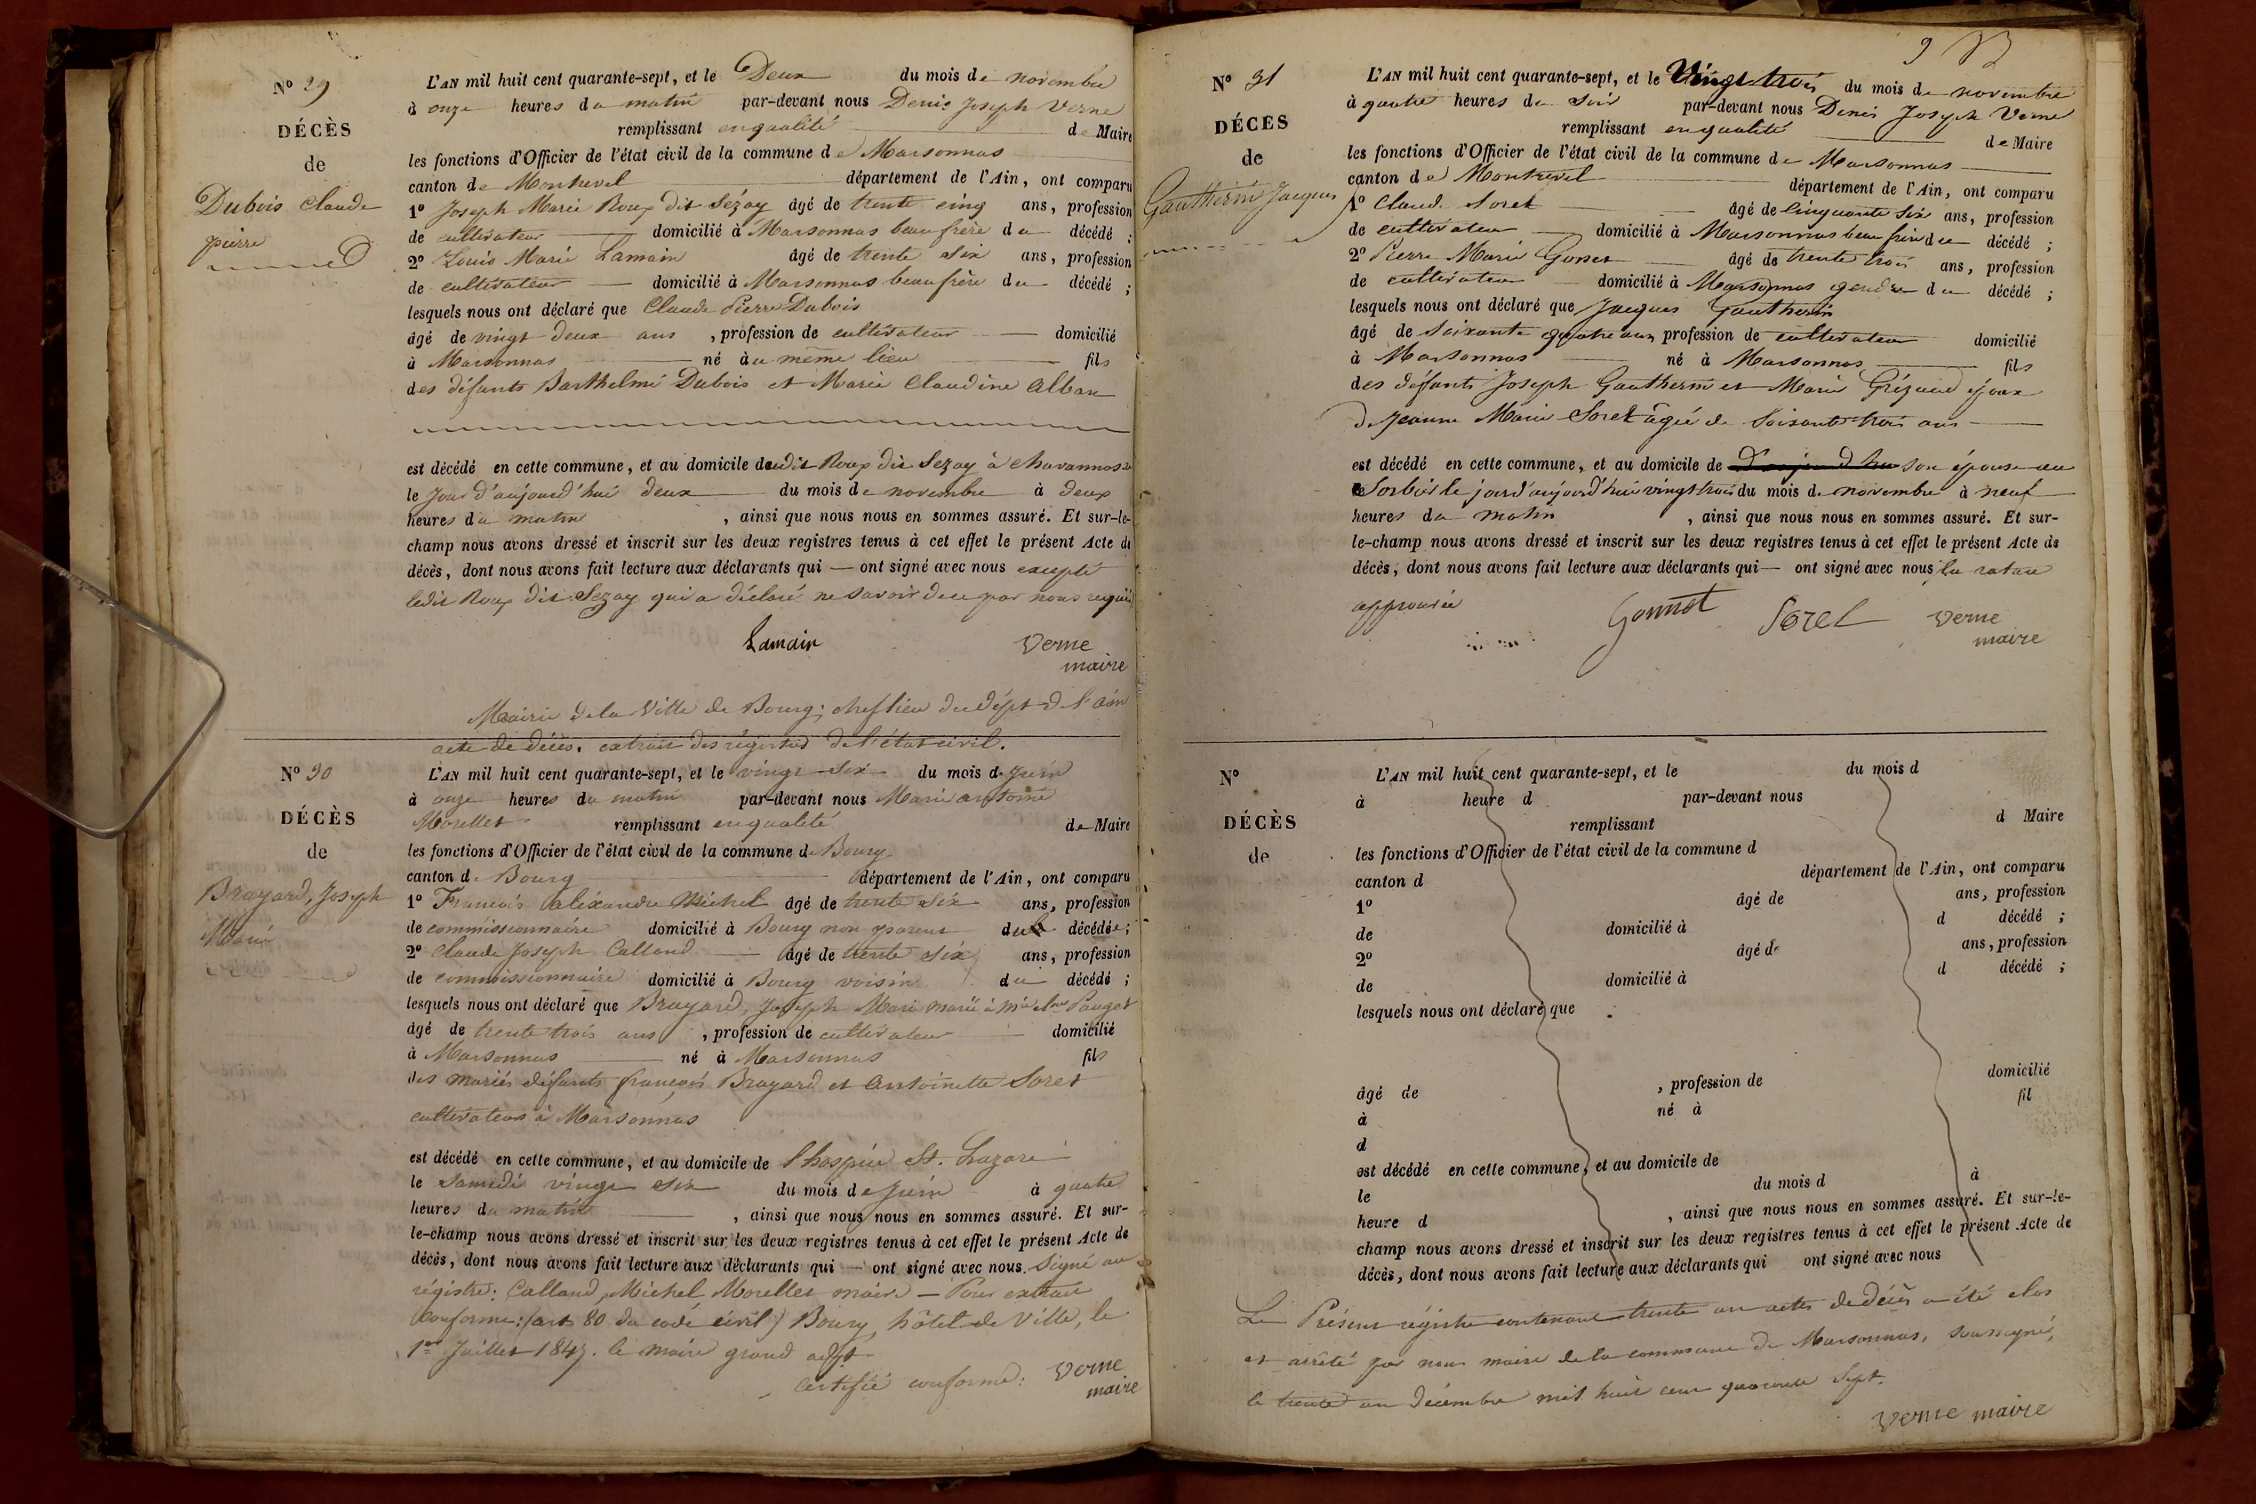 N° 29
DÉCÈS
de
Dubois Claude
pierre
L'AN mil huit cent quarante-sept, et le Deux du mois de novembre
à onze heures du matin par-devant nous Denis Joseph Verne
remplissant en qualité de Maire
les fonctions d'Officier de l'état civil de la commune de Marsonnas
canton de Montrevel département de l'Ain, ont comparu
1° Joseph Marie Roux dit Sézay âgé de trente cinq ans, profession
de cultivateur domicilié à Marsonnas beau frère du décédé ;
2° Louis Marie Lamain âgé de trente six ans, profession
de cultivateur domicilié à Marsonnas beau frère du décédé ;
lesquels nous ont déclaré que Claude Pierre Dubois
âgé de vingt deux ans , profession de cultivateur domicilié
à Marsonnas né au même lieu fils
des défunts Barthelmi Dubois et Marie Claudine Alban
est décédé en cette commune, et au domicile dudit Roux dit Sezay à Chavannes
le jour d'aujourd'hui deux du mois de novembre à deux
heures du matin , ainsi que nous nous en sommes assuré. Et sur-le-
champ nous avons dressé et inscrit sur les deux registres tenus à cet effet le présent Acte de
décès, dont nous avons fait lecture aux déclarants qui — ont signé avec nous excepté
ledit Roux dit Sezay qui a déclaré ne savoir de ce par nous requis
Lamain Verne
maire
Mairie de la Ville de Bourg, chef lieu du dépt de l'ain
acte de décès. extrait des régistres de l'état civil.
N° 30
DÉCÈS
de
Brayard, Joseph
Marie
L'AN mil huit cent quarante-sept, et le vingt-six du mois de Juin
à onze heures du matin par-devant nous Marie antoine
Morellet remplissant en qualité de Maire
les fonctions d'Officier de l'état civil de la commune de Bourg
canton de Bourg département de l'Ain, ont comparu
1° François alexandre Michel âgé de trente six ans, profession
de commissionnaire domicilié à Bourg non parent du décédé ;
2° Claude Joseph Calland âgé de trente six ans, profession
de commissionnaire domicilié à Bourg voisin du décédé ;
lesquels nous ont déclaré que Brayard, Joseph Marie marié à Pauget
âgé de trente trois ans , profession de cultivateur domicilié
à Marsonnas né à Marsonnas fils
des mariés défunts françois Brayard et Antoinette Soret
cultivateurs à Marsonnas
est décédé en cette commune, et au domicile de l'hospice St. Lazare
le Samedi vingt six du mois de Juin à quatre
heures du matin , ainsi que nous nous en sommes assuré. Et sur-
le-champ nous avons dressé et inscrit sur les deux registres tenus à cet effet le présent Acte de
décès, dont nous avons fait lecture aux déclarants qui — ont signé avec nous. Signé au
régistre: Calland, Michel Morellet maire — Pour extrait
Conforme: (art 80 du code civil) Bourg, hôtel de Ville, le
1er Juillet 1847. le maire grand adjt
Certifié conforme: Verne
maire
N° 31
DÉCÈS
de
Gautherin Jacques
L'AN mil huit cent quarante-sept, et le Vingt trois du mois de novembre
à quatre heures du soir par-devant nous Denis Joseph Verne
remplissant en qualité de Maire
les fonctions d'Officier de l'état civil de la commune de Marsonnas
canton de Montrevel département de l'Ain, ont comparu
1° Claude Soret âgé de cinquante six ans, profession
de cultivateur domicilié à Marsonnas beau frère du décédé ;
2° Pierre Marie Gonnet âgé de trente trois ans, profession
de cultivateur domicilié à Marsonnas gendre du décédé ;
lesquels nous ont déclaré que Jacques Gautherin
âgé de soixante quatre ans, profession de cultivateur domicilié
à Marsonnas né à Marsonnas fils
des défunts Joseph Gautherin et Marie époux
de Jeanne Marie Soret âgée de soixante trois ans
est décédé en cette commune, et au domicile de son épouse au
Sorbier le jour d'aujourd'hui vingt trois du mois de novembre à neuf
heures du matin , ainsi que nous nous en sommes assuré. Et sur-
le-champ nous avons dressé et inscrit sur les deux registres tenus à cet effet le présent Acte de
décès, dont nous avons fait lecture aux déclarants qui — ont signé avec nous la rature
approuvée
Gonnet Sorel Verne
maire
N°
DÉCÈS
de
L'AN mil huit cent quarante-sept, et le du mois d
à heure d par-devant nous
remplissant d Maire
les fonctions d'Officier de l'état civil de la commune d
canton d département de l'Ain, ont comparu
1° âgé de ans, profession
de domicilié à d décédé ;
2° âgé de ans, profession
de domicilié à d décédé ;
lesquels nous ont déclaré que
âgé de , profession de domicilié
à né à fil
d
est décédé en cette commune, et au domicile de
le du mois d à
heure d , ainsi que nous nous en sommes assuré. Et sur-le-
champ nous avons dressé et inscrit sur les deux registres tenus à cet effet le présent Acte de
décès, dont nous avons fait lecture aux déclarants qui ont signé avec nous
Le Présent régistre contenant trente un actes de décès a été clos
et arrêté par nous maire de la commune de Marsonnas, soussigné,
le trente un Décembre mil huit cent quarante Sept.
Verne maire